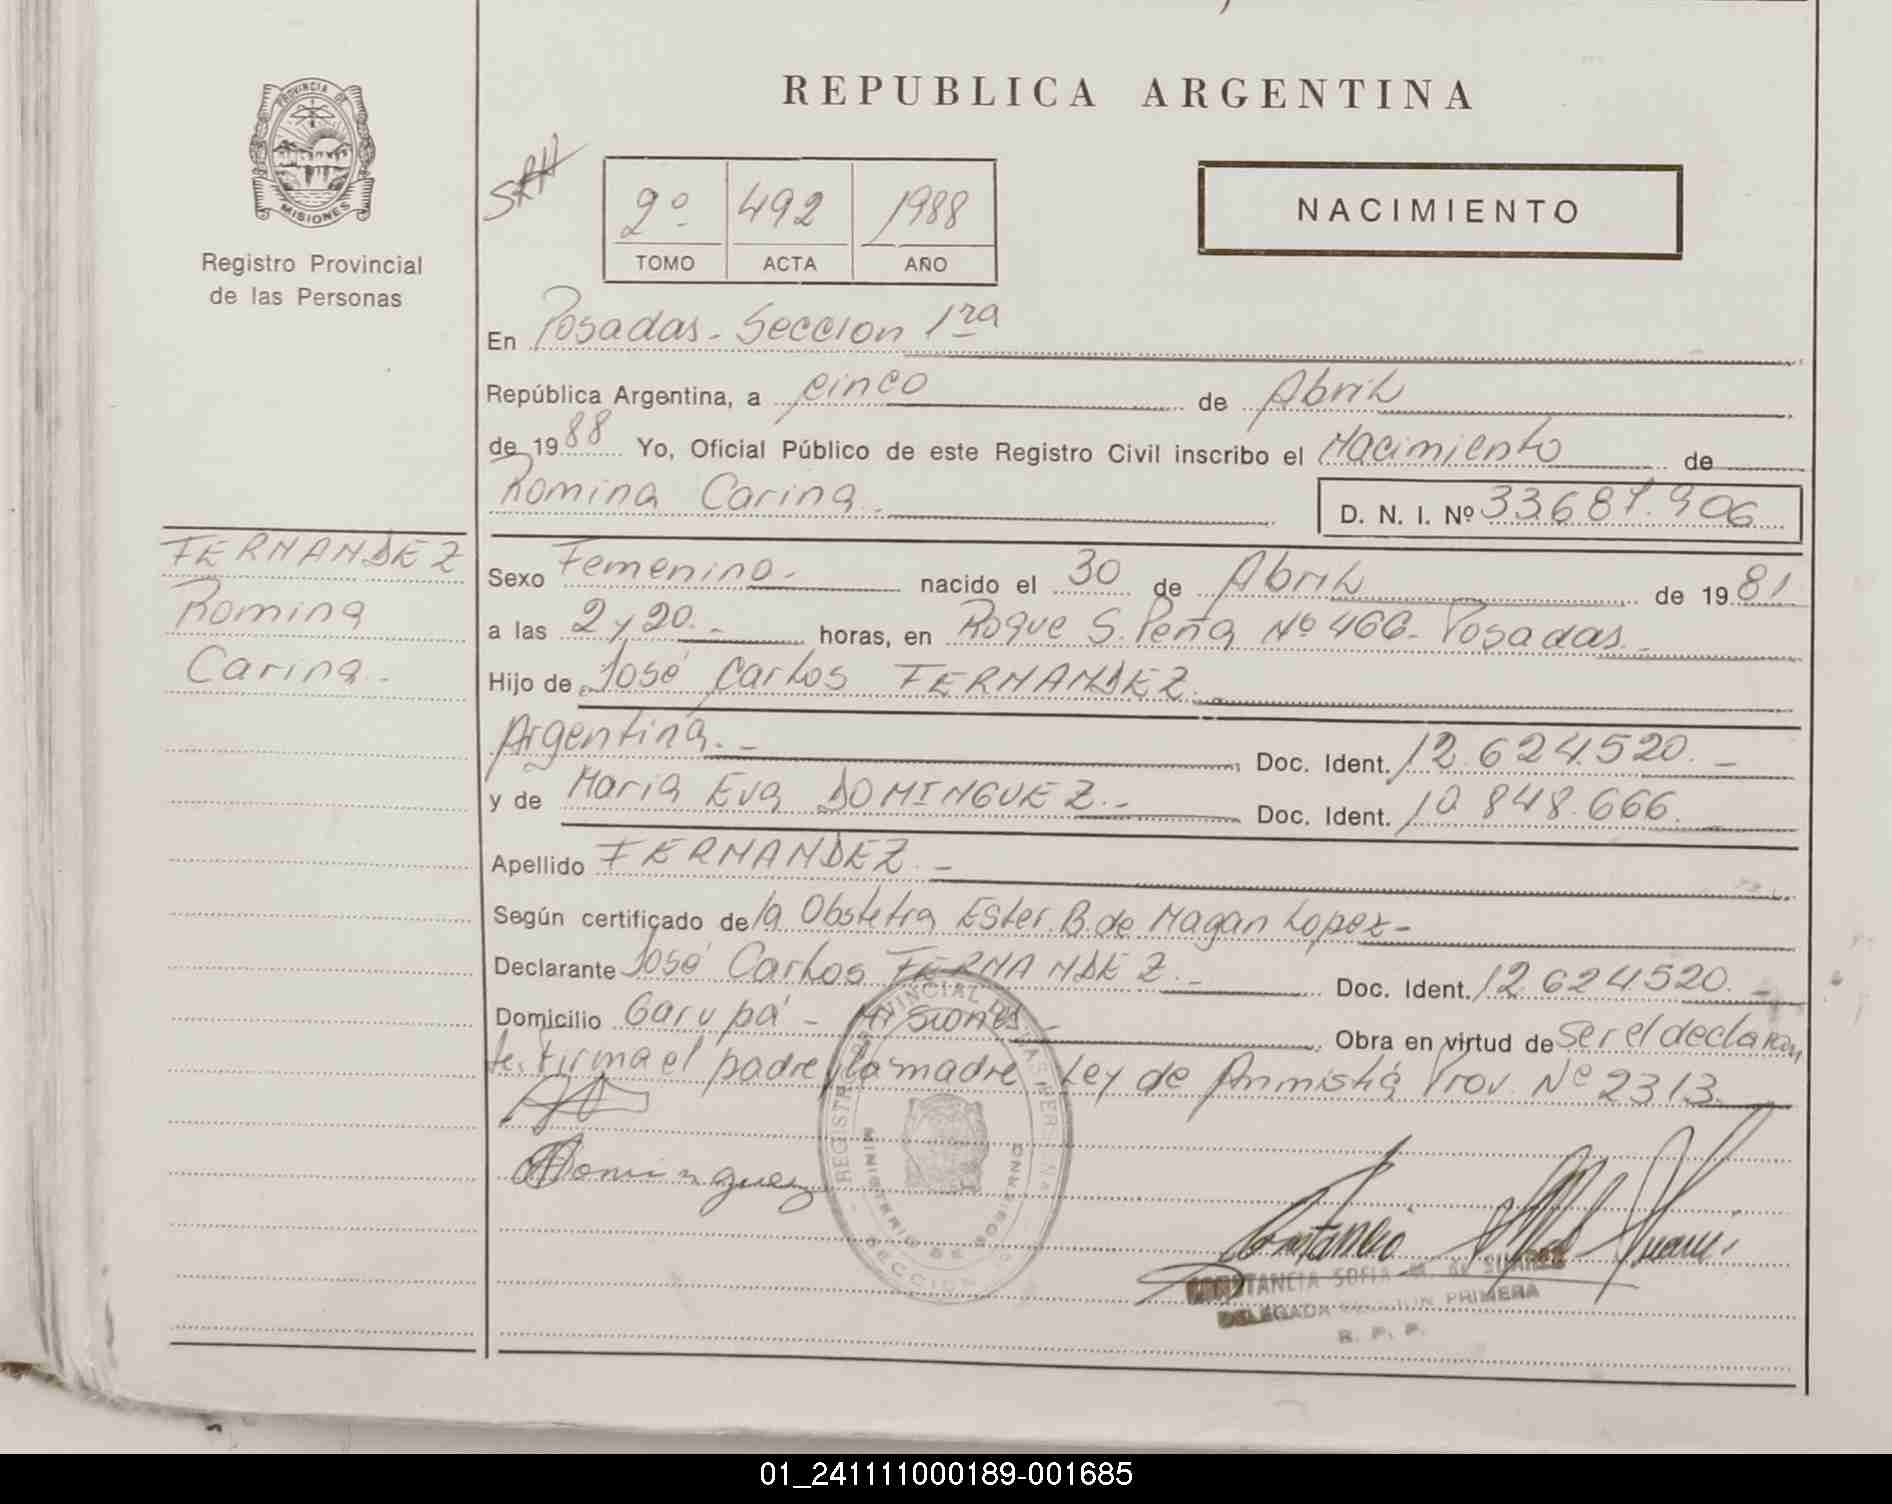 REPUBLICA ARGENTINA
PROVINCIA DE
MISIONES
Registro Provincial
de las Personas
2º 492 1988
TOMO ACTA AÑO
NACIMIENTO
En Posadas - Seccion 1ra
República Argentina, a cinco de Abril
de 1988 Yo, Oficial Público de este Registro Civil inscribo el Nacimiento de
Romina Carina.
D. N. I. Nº 33.687.906
FERNANDEZ
Romina
Carina.-
Sexo Femenino.- nacido el 30 de Abril de 1981
a las 2 y 20.- horas, en Roque S. Peña Nº 466- Posadas.-
Hijo de José Carlos FERNANDEZ.-
Argentina.- Doc. Ident. 12.624.520.-
y de Maria Eva DOMINGUEZ.- Doc. Ident. 10.848.666.
Apellido FERNANDEZ.-
Según certificado de la Obstetra Ester B. de Magan Lopez-
Declarante José Carlos FERNANDEZ.- Doc. Ident. 12.624520.-
Domicilio Garupá - Misiones - Obra en virtud de ser el declaran
te. Firma el padre y la madre Ley de Amnistia Prov. Nº 2313.
Dominguez
REGISTRO PROVINCIAL DE LAS PERSONAS
MINISTERIO DE GOBIERNO
CONSTANCIA SOFIA M. DE SUAREZ
DELEGADA SECCION PRIMERA
R. P. P.
01_241111000189-001685